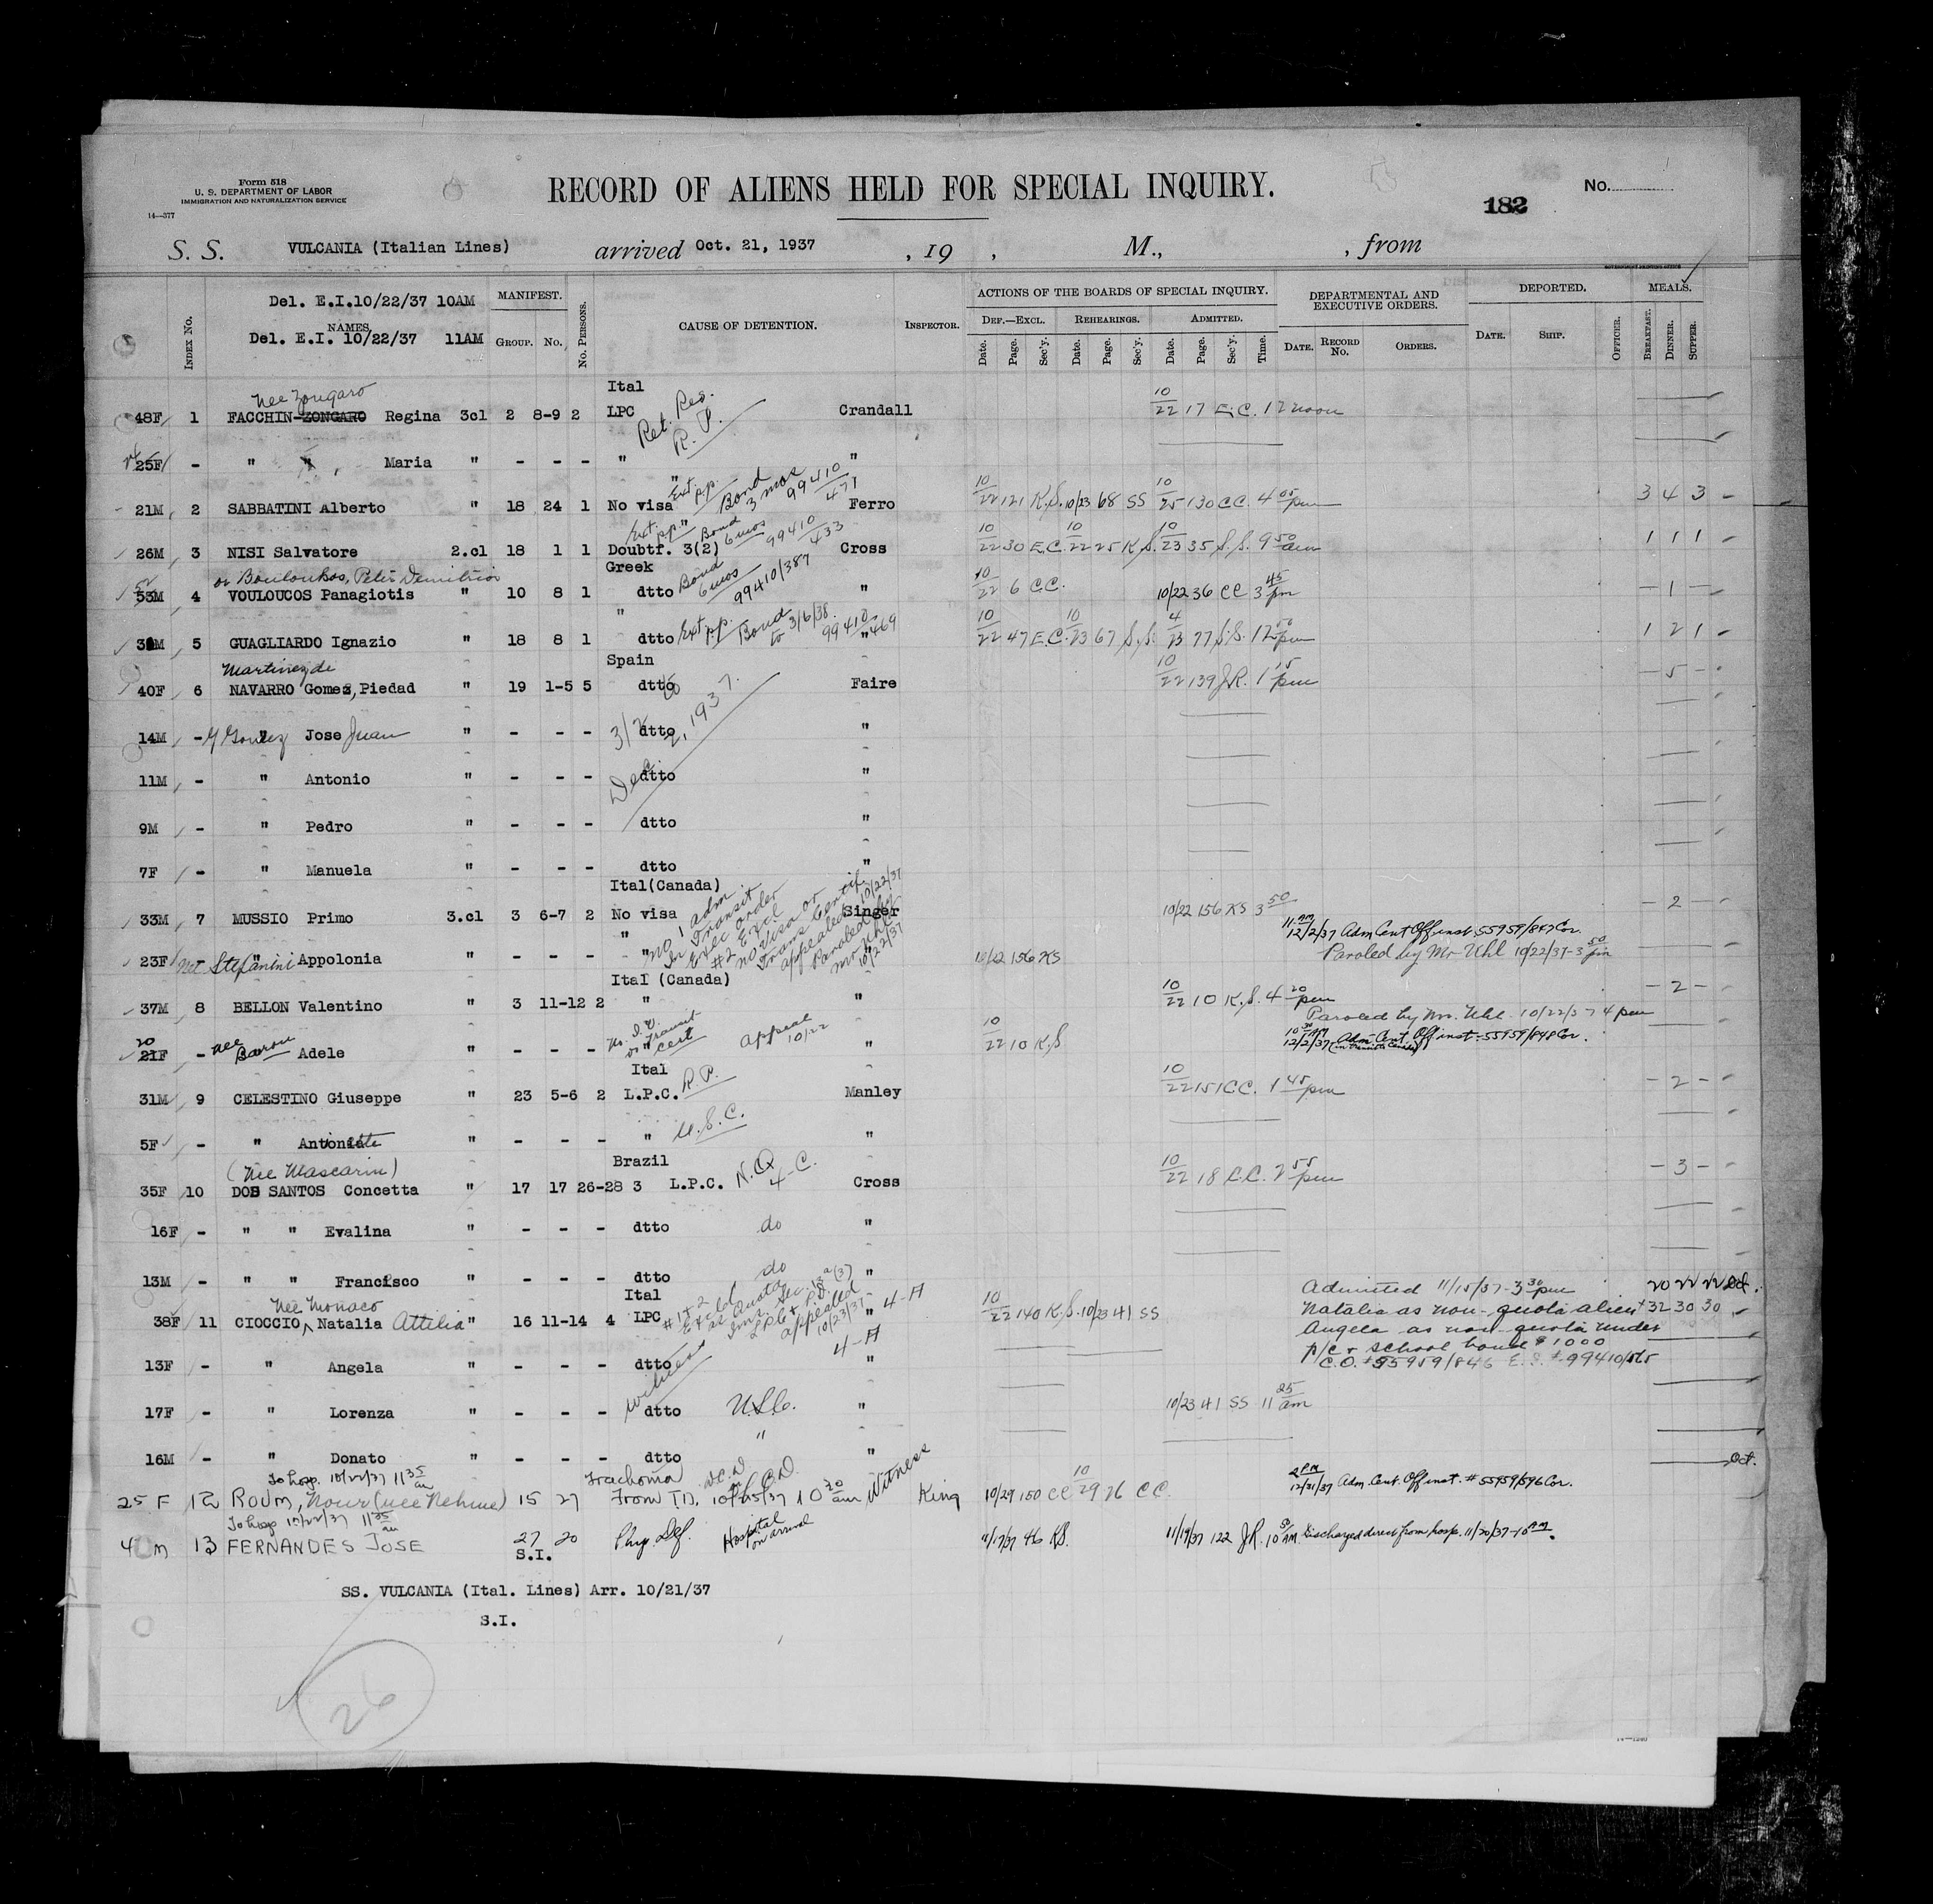 Form 518
U. S. DEPARTMENT OF LABOR
IMMIGRATION AND NATURALIZATION SERVICE
14—377
RECORD OF ALIENS HELD FOR SPECIAL INQUIRY.
No.
182
S. S. VULCANIA (Italian Lines) arrived Oct. 21, 1937 , 19 , M., , from
GOVERNMENT PRINTING OFFICE
Del. E.I.10/22/37 10AM
Del. E.I. 10/22/37 11AM
INDEX No. NAMES. MANIFEST. GROUP. No. No. PERSONS. CAUSE OF DETENTION. INSPECTOR.
ACTIONS OF THE BOARDS OF SPECIAL INQUIRY. DEPARTMENTAL AND EXECUTIVE ORDERS. DEPORTED. MEALS.
DEF.—EXCL. REHEARINGS. ADMITTED.
Date. Page. Sec'y. Date. Page. Sec'y. Date. Page. Sec'y. Time. DATE. RECORD No. ORDERS. DATE. SHIP. OFFICER. BREAKFAST. DINNER. SUPPER.
nee Zongaro Ital
48F 1 FACCHIN-ZONGARO Regina 3cl 2 8-9 2 LPC Ret. Res. R. P. Crandall 10/22 17 E.C. 12 noon
25F - " " Maria " - - - " "
"
21M 2 SABBATINI Alberto " 18 24 1 No visa Ext. p.p. Bond 3 mos 99410/471 Ferro 10/22 121 K.S. 10/23 68 SS 10/25 130 CC. 4 05 pm 3 4 3 -
"
26M 3 NISI Salvatore 2.cl 18 1 1 Doubtf. 3(2) Ext. p.p. Bond 6 mos 99410/433 Cross 10/22 30 E.C. 10/22 25 K.S. 10/23 35 S.S. 9 50 am 1 1 1 -
or Bouloukos, Peter Demitrios Greek
53M 4 VOULOUCOS Panagiotis " 10 8 1 dtto Bond 6 mos 99410/387 " 10/22 6 CC. 10/22 36 CC 3 45 pm - 1 -
"
5 GUAGLIARDO Ignazio " 18 8 1 dtto Ext. p.p. Bond to 3/6/38. 99410/469 " 10/22 47 E.C. 10/23 67 S.S. 77 S.S. 12 50 pm 1 2 1 -
Martinez de Spain
40F 6 NAVARRO Gomez, Piedad " 19 1-5 5 dtto Faire 10/22 139 J.R. 1 15 pm - 5 -
14M - Gomez " Jose Juan " - - - dtto "
Dec 2, 1937.
11M - " Antonio " - - - dtto "
9M - " Pedro " - - - dtto "
7F - " Manuela " - - - dtto "
Ital(Canada)
33M 7 MUSSIO Primo 3.cl 3 6-7 2 No visa Singer 10/22 156 KS 3 50 - 2 -
No 1 adm In Transit Exec order #2 Excl no visa or Trans Certif. appealed 10/22/37 Paroled by Mr Uhl 10/22/37
11 AM 12/2/37 Adm Cent Off inst. 55959/847 Cor.
23F - nee Stefanini " Appolonia " - - - " " 10/22 156 KS Paroled by Mr Uhl 10/22/37-3 50 pm
Ital (Canada)
37M 8 BELLON Valentino " 3 11-12 2 " " 10/22 10 K.S. 4 20 pm - 2 -
Paroled by Mr. Uhl 10/22/37 4 pm
21F - nee Baron Adele " - - - No. I.V. or Transit cert appeal 10/22 " 10/22 10 K.S
10 30 AM 12/2/37 Adm. Cent. Off inst. 55959/848 Cor.
(in Transit to Canada)
Ital
31M 9 CELESTINO Giuseppe " 23 5-6 2 L.P.C. R.P. Manley 10/22 151 CC. 1 45 pm - 2 -
5F - " " - - - " U.S.C. "
(Nee Mascarin) Brazil
35F 10 DOS SANTOS Concetta " 17 17 26-28 3 L.P.C. N.Q 4-C. Cross 10/22 18 C.C. 2 55 pm - 3 -
16F - " " Evalina " - - - dtto do "
13M - " " Francisco " - - - dtto do "
Nee Monaco Ital
38F 11 CIOCCIO Natalia Attilia " 16 11-14 4 LPC " 4-A 10/22 140 K.S. 10/23 41 SS 32 30 30 -
#1+2 Excld as Quota Imm. Sec 13a(3) LPC + P.D. appealed 10/23/37
Admitted 11/15/37-3 30 pm
Natalia as non-quota alien
Angela as non quota under
p/c + school bond $1000
C.O. #55959/846 E.I. #99410/565
13F - " Angela " - - - dtto 4-A "
17F - " Lorenza " - - - dtto Witness U.S.C. " 10/23 41 SS 11 25 am
16M - " Donato " - - - dtto " "
To hosp. 10/22/37 11 35 am Trachoma
25 F 12 ROUM, Nour (nee Nehme) 15 27 From T.D. 10/25/37 10 30 am Witness King 10/29 150 CC 10/29 76 CC.
2 PM 12/31/37 Adm. Cent. Off inst. # 55959/896 Cor.
To hosp 10/22/37 11 35 am
4 m 13 FERNANDES JOSE 27 20 Phy. Def. Hospital on arrival 11/17/37 46 KS. 11/19/37 122 JR. 10 50 AM. Discharged direct from hosp. 11/20/37-10 AM.
S.I.
SS. VULCANIA (Ital. Lines) Arr. 10/21/37
S.I.
26